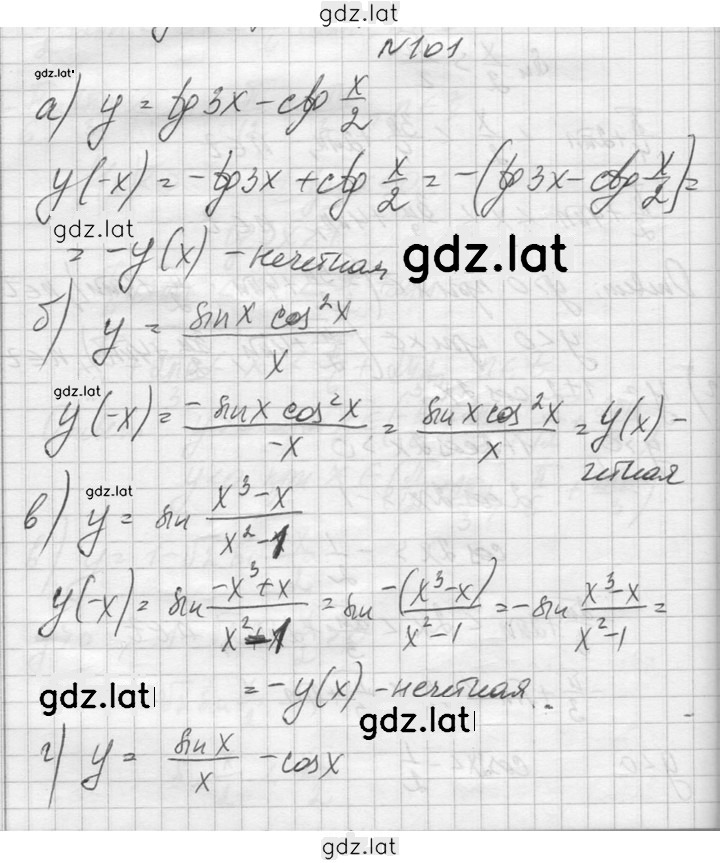 gdz.lat
N101
gdz.lat
а) y = tg3x - ctg x/2
y(-x) = -tg3x + ctg x/2 = -(tg3x - ctg x/2) =
gdz.lat
= -y(x) - нечетная
gdz.lat
б) y = sinx cos²x / x
gdz.lat
y(-x) = -sinx cos²x / -x = sinx cos²x / x = y(x) -
четная
gdz.lat
в) y = sin x³-x / x²-1
y(-x) = sin -x³+x / x²-1 = sin -(x³-x) / x²-1 = -sin x³-x / x²-1 =
= -y(x) - нечетная.
gdz.lat
gdz.lat
г) y = sinx / x - cosx
gdz.lat